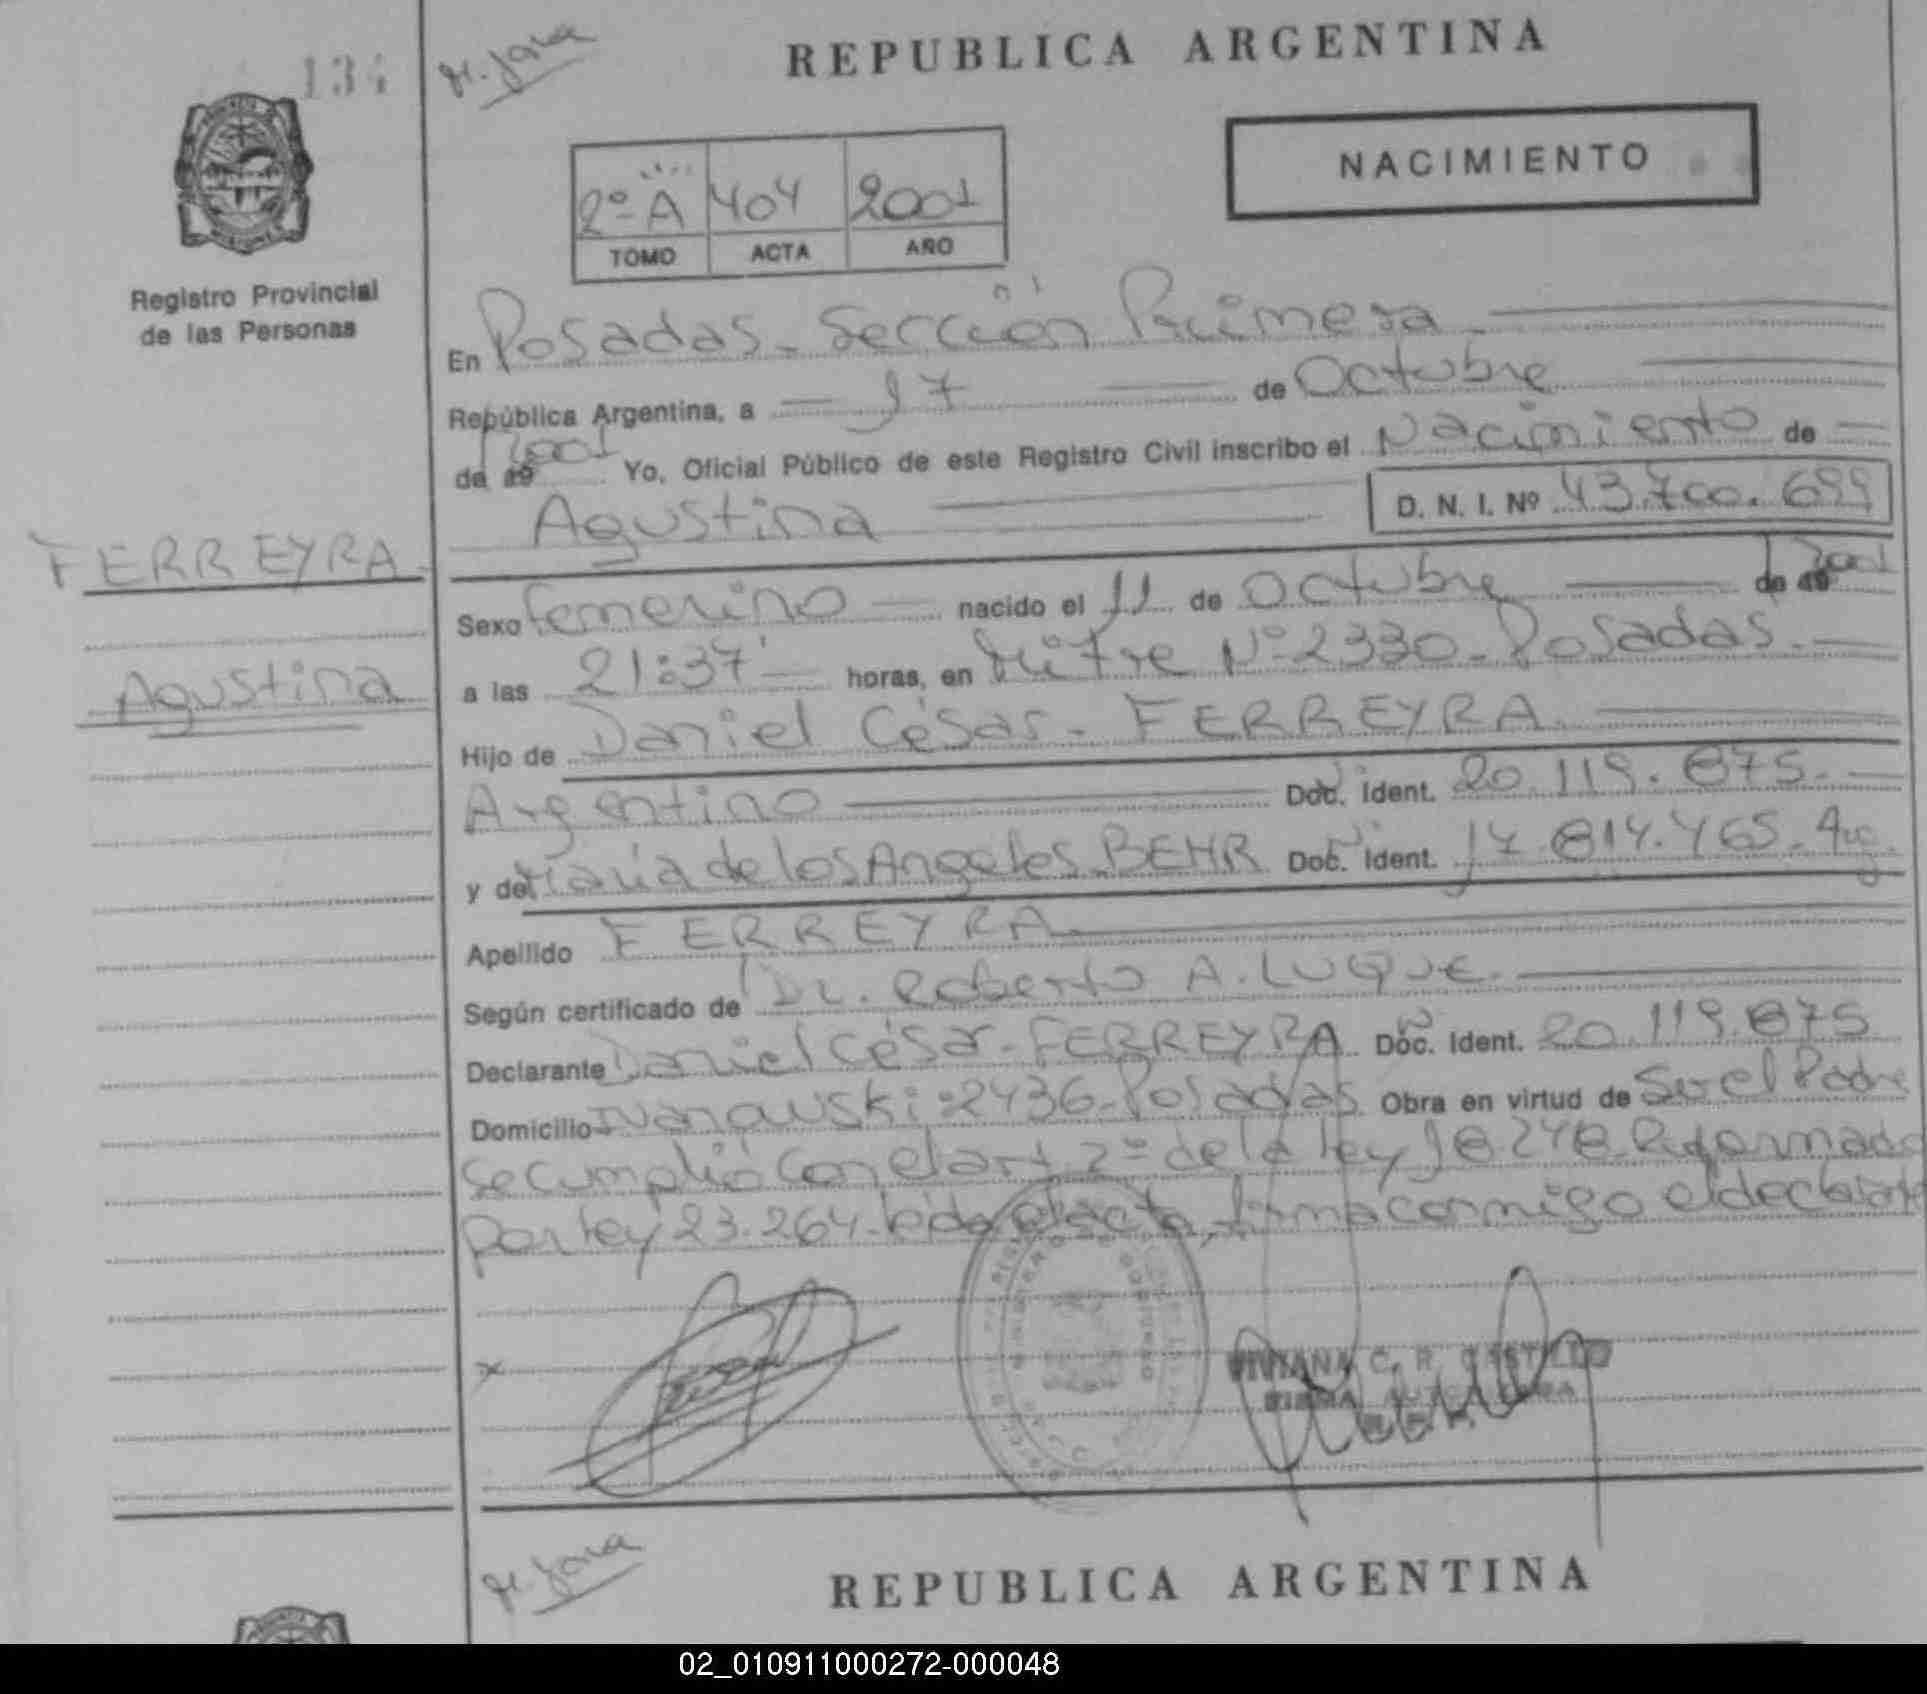 134
REPUBLICA ARGENTINA
NACIMIENTO
2º A 404 2001
TOMO ACTA AÑO
Registro Provincial
de las Personas
En Posadas - Sección Primera
República Argentina, a 17 de Octubre
de 19 2001 Yo, Oficial Público de este Registro Civil inscribo el Nacimiento de
Agustina D. N. I. Nº 43.700.699
FERREYRA
Agustina
Sexo femenino nacido el 11 de Octubre de 19 2001
a las 21:37 horas, en Mitre Nº 2330 - Posadas
Hijo de Daniel César - FERREYRA
Argentino Doc. Ident. 20.119.875.
y de María de los Angeles BEHR Doc. Ident. 17.814.465. Arg.
Apellido FERREYRA
Según certificado de Dr. Roberto A. LUQUE
Declarante Daniel César - FERREYRA Doc. Ident. 20.119.875
Domicilio Ivanowski: 2436 - Posadas Obra en virtud de Ser el Padre
Se cumplió con el art 2º de la ley 18.248 Reformado
por ley 23.264. leída el acta, firma conmigo el declarante
x
VIVIANA C. R. CASTILLO
FIRMA AUTORIZADA
REPUBLICA ARGENTINA
02_010911000272-000048